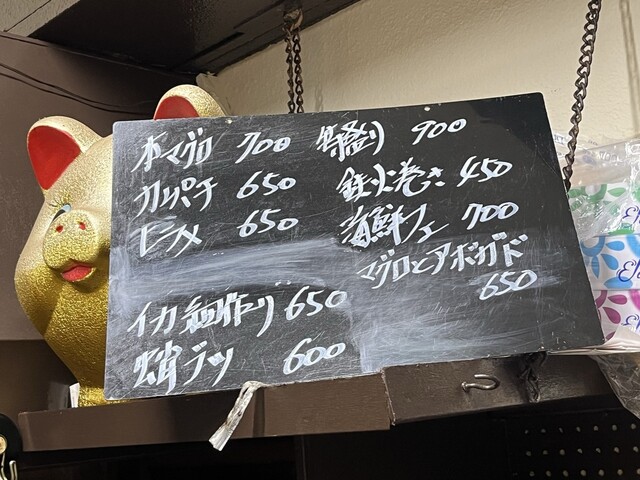 本マグロ 700
カンパチ 650
ヒラメ 650
イカ細作り 650
蛸ブツ 600
盛り 900
鉄火巻き 450
海鮮フェ 700
マグロとアボガド
650